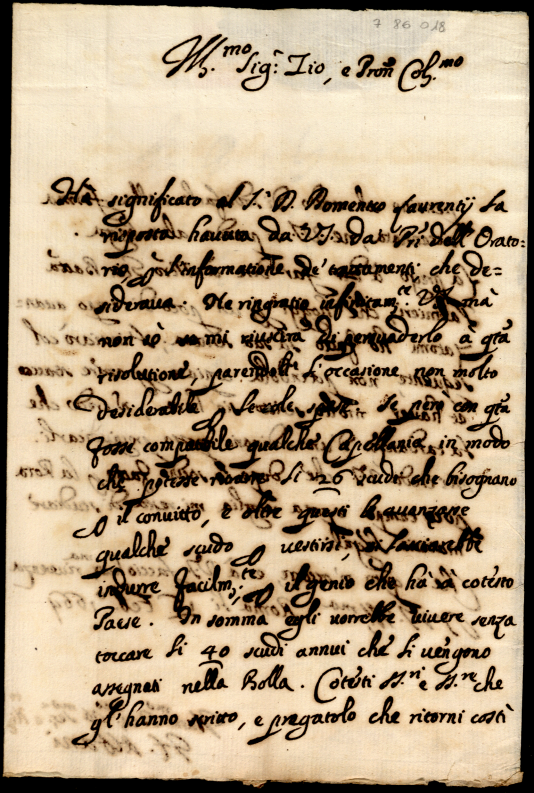 7 86 018
Ill.mo Sig.r Zio, e Pron Col.mo
Hà significato al S.r D. Domenico Laurentij la
risposta havuta da VS. da PP.ri dell'Orato=
rio p l'informatione de trattamenti che de=
siderava. Ne ringratio infinitam.te VS. mà
non sò se mi riuscirà di persuaderlo à q.ta
risolutione, parendoli l'occasione non molto
desiderabile p le sole se però con q.ta
fosse compatibile qualche Capellania in modo
che potesse li 26 scudi che bisognano
p il convitto, e oltre questi le avanzasse
qualche scudo p vestirsi, si lasciarebbe
indurre facilm.te p il genio che hà à cotesto
Paese. In somma egli vorrebbe vivere senza
toccare li 40 scudi annui che li vengono
assegnati nella Bolla. Cotesti SS.ri e SS.re che
gl' hanno scritto, e pregatolo che ritorni costì